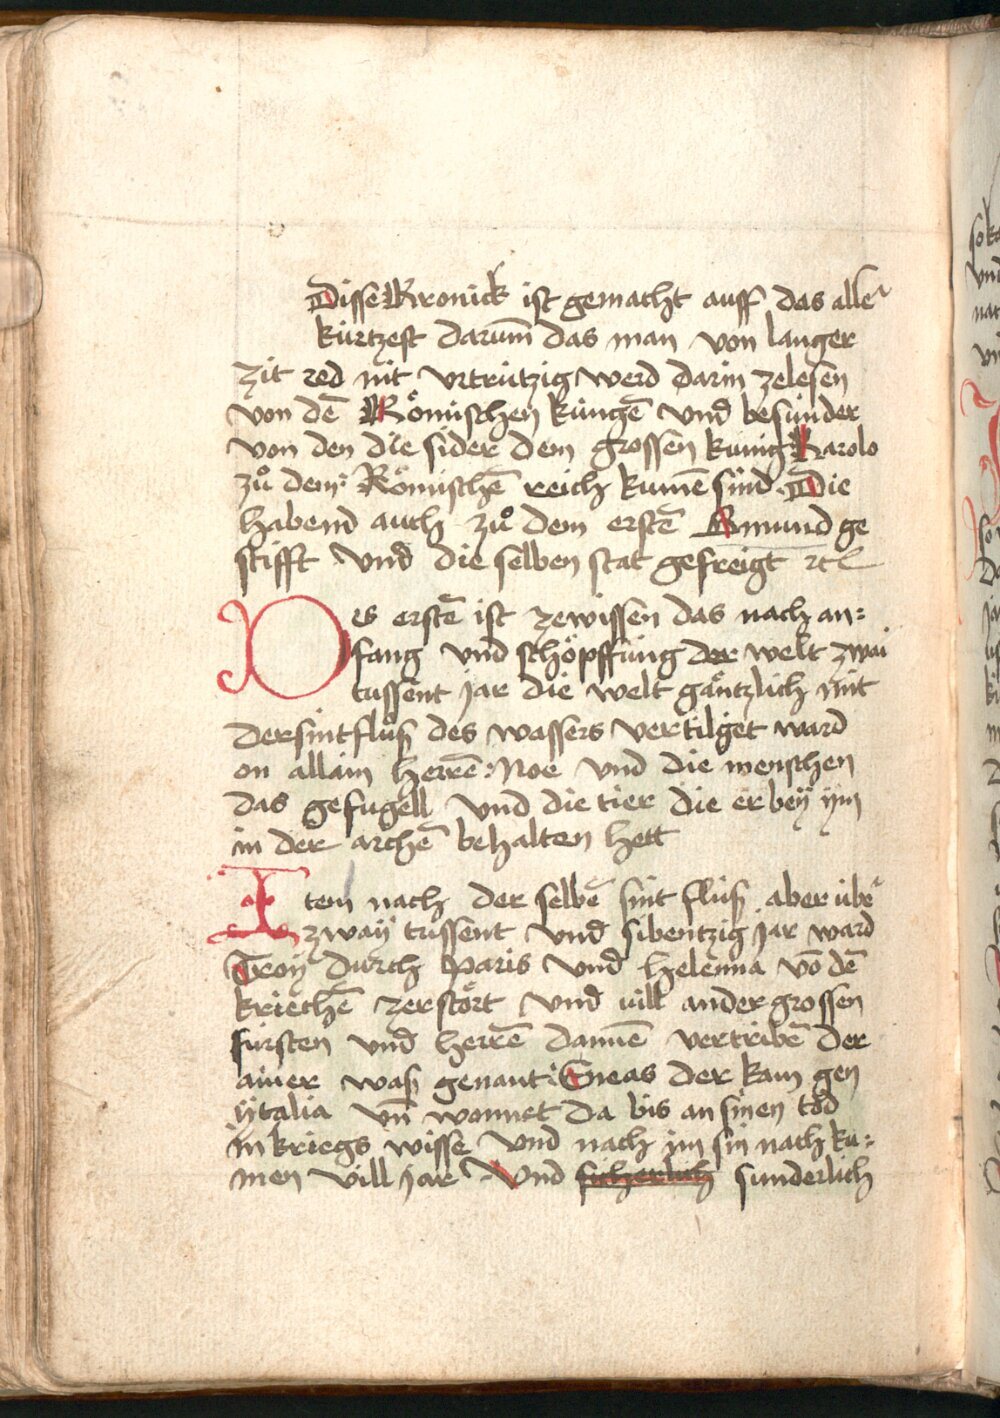 Disse Kronick ist gemacht auff das alle᷑
kürtzest darum̄ das man von langer
zit red nit vrtrützig werd darin zelesen
von dē Römischen küngē vnd besunder
von den die sider dem grossen kunig Karolo
zů dem Römischē reich kumē sind Die
habend auch zů dem erstē Gmünd ge
stifft vnd die selben stat gefreigt ꝛcꝉ
Des erstē ist zewissen das nach an:
fang vnd schöpffung der welt zwai
tussent jar die welt gäntzlich mit
der sintfluß des wassers vertilget ward
on allain herrē Noe vnd die menschen
das gefugell vnd die tier die er bey ym
in der archē behalten hett
Item nach der selbē sint fluß aber übe᷑
zwaÿ tussent vnd sibentzig jar ward
Troÿ durch Paris vnd helenna vō dē
kriechē zerstört vnd vill ander grossen
fürsten vnd herrē dannē vertribē der
ainer waß genant Eneas der kam gen
ÿtalia vn̄ wonnet da bis an sinen tod
in kriegs wisse vnd nach im sin nach ku:
men vill jar Vnd sicherlich sunderlich